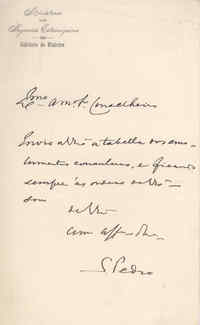 Ministerio
dos
Negocios Estrangeiros
Gabinete do Ministro
Exmo Amo. Sr. Conselheiro
Envio a V. Exa a tabella dos emo-
lumentos consulares, e ficando
sempre ás ordens de V. Exa
sou
de V. Exa
S. Pedro